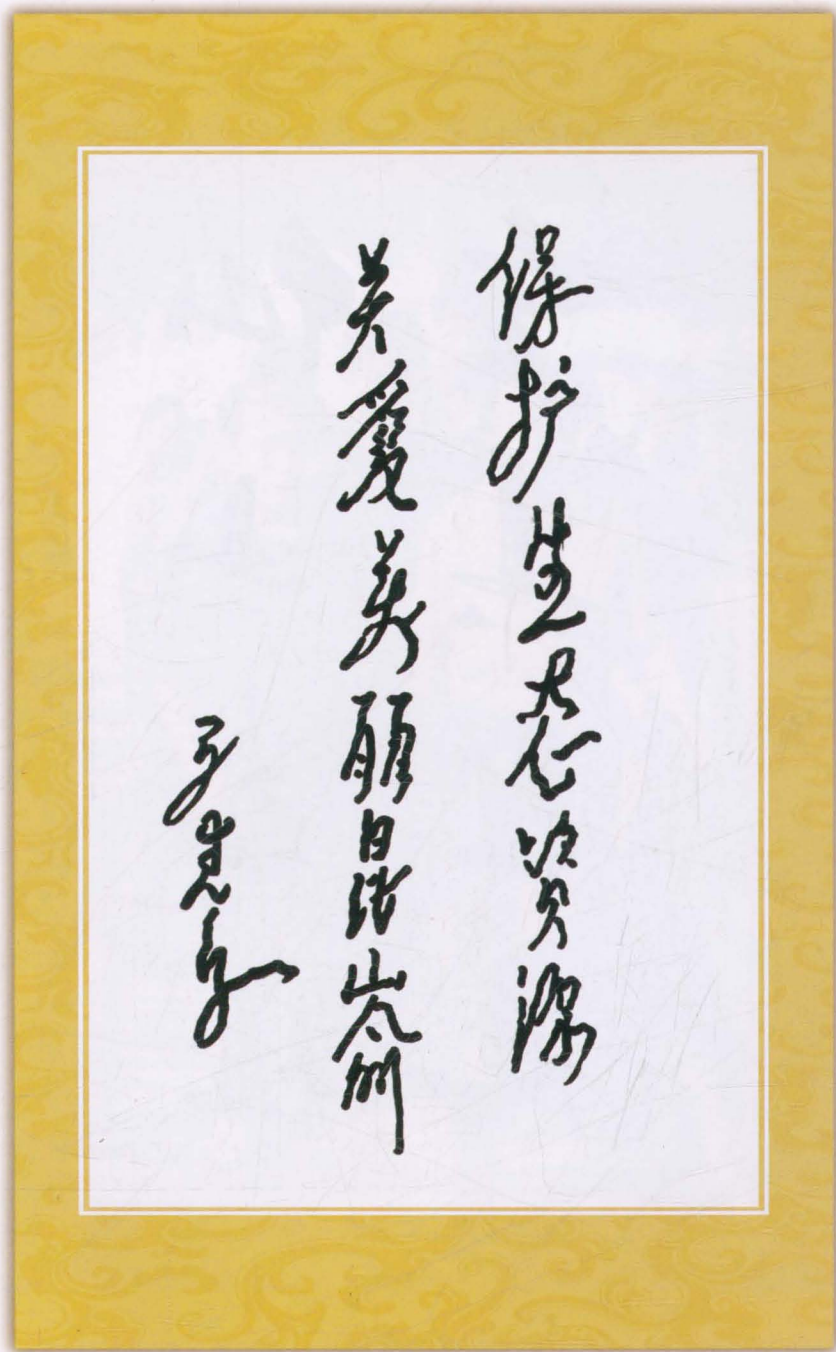 保护生态资源
关爱美丽昆嵛